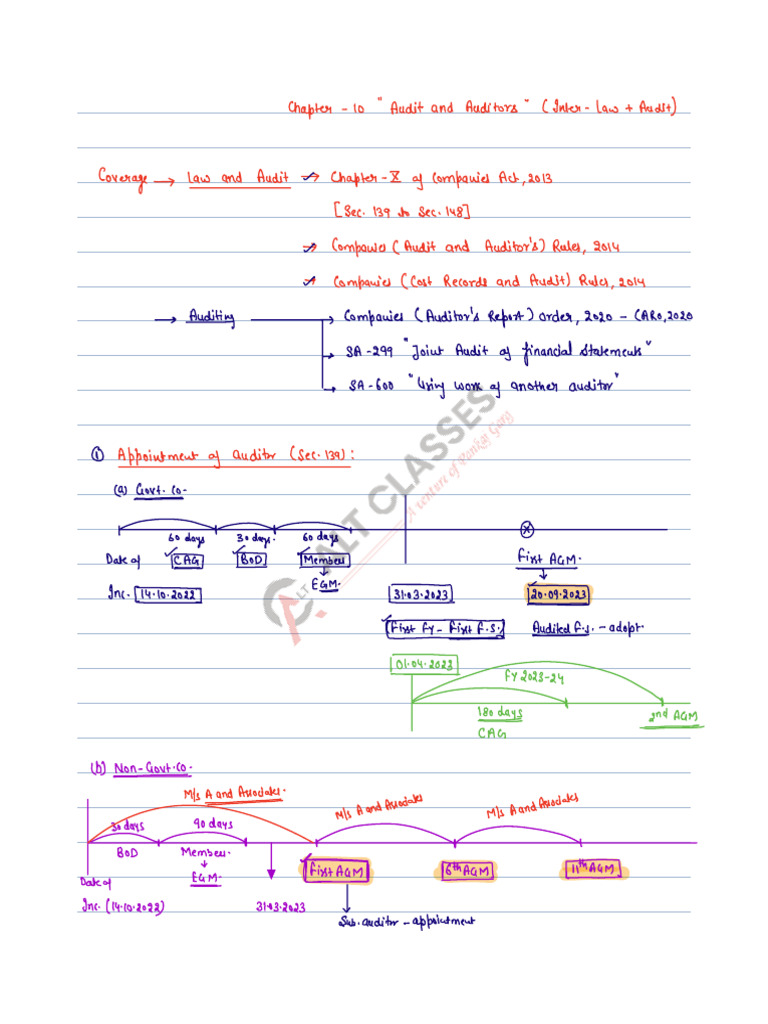 Chapter - 10 " Audit and Auditors " ( Inter - Law + Audit)
Coverage → Law and Audit → Chapter - X of Companies Act, 2013
[Sec. 139 to Sec. 148]
→ Companies ( Audit and Auditor's) Rules, 2014
→ Companies (Cost Records and Audit) Rules, 2014
→ Auditing → Companies (Auditor's Report) order, 2020 - CARO, 2020
→ SA - 299 "Joint Audit of financial statements"
→ SA - 600 "Using work of another auditor"
① Appointment of auditor (Sec. 139) :
(a) Govt. Co.
60 days 30 days 60 days
Date of CAG BoD Members First AGM
EGM
Inc. 14.10.2022 31.03.2023 20.09.2023
First FY - First F.S. Audited f.s. - adopt
01.04.2023
FY 2023-24
180 days 2nd AGM
CAG
(b) Non-Govt. co.
M/s A and Associates M/s A and Associates M/s A and Associates
30 days 90 days
BoD Members
First AGM 6th AGM 11th AGM
EGM
Date of
Inc. (14.10.2022) 31.03.2023
Sub. auditor - appointment
ALT CLASSES
A venture of Pankaj Garg
ALT